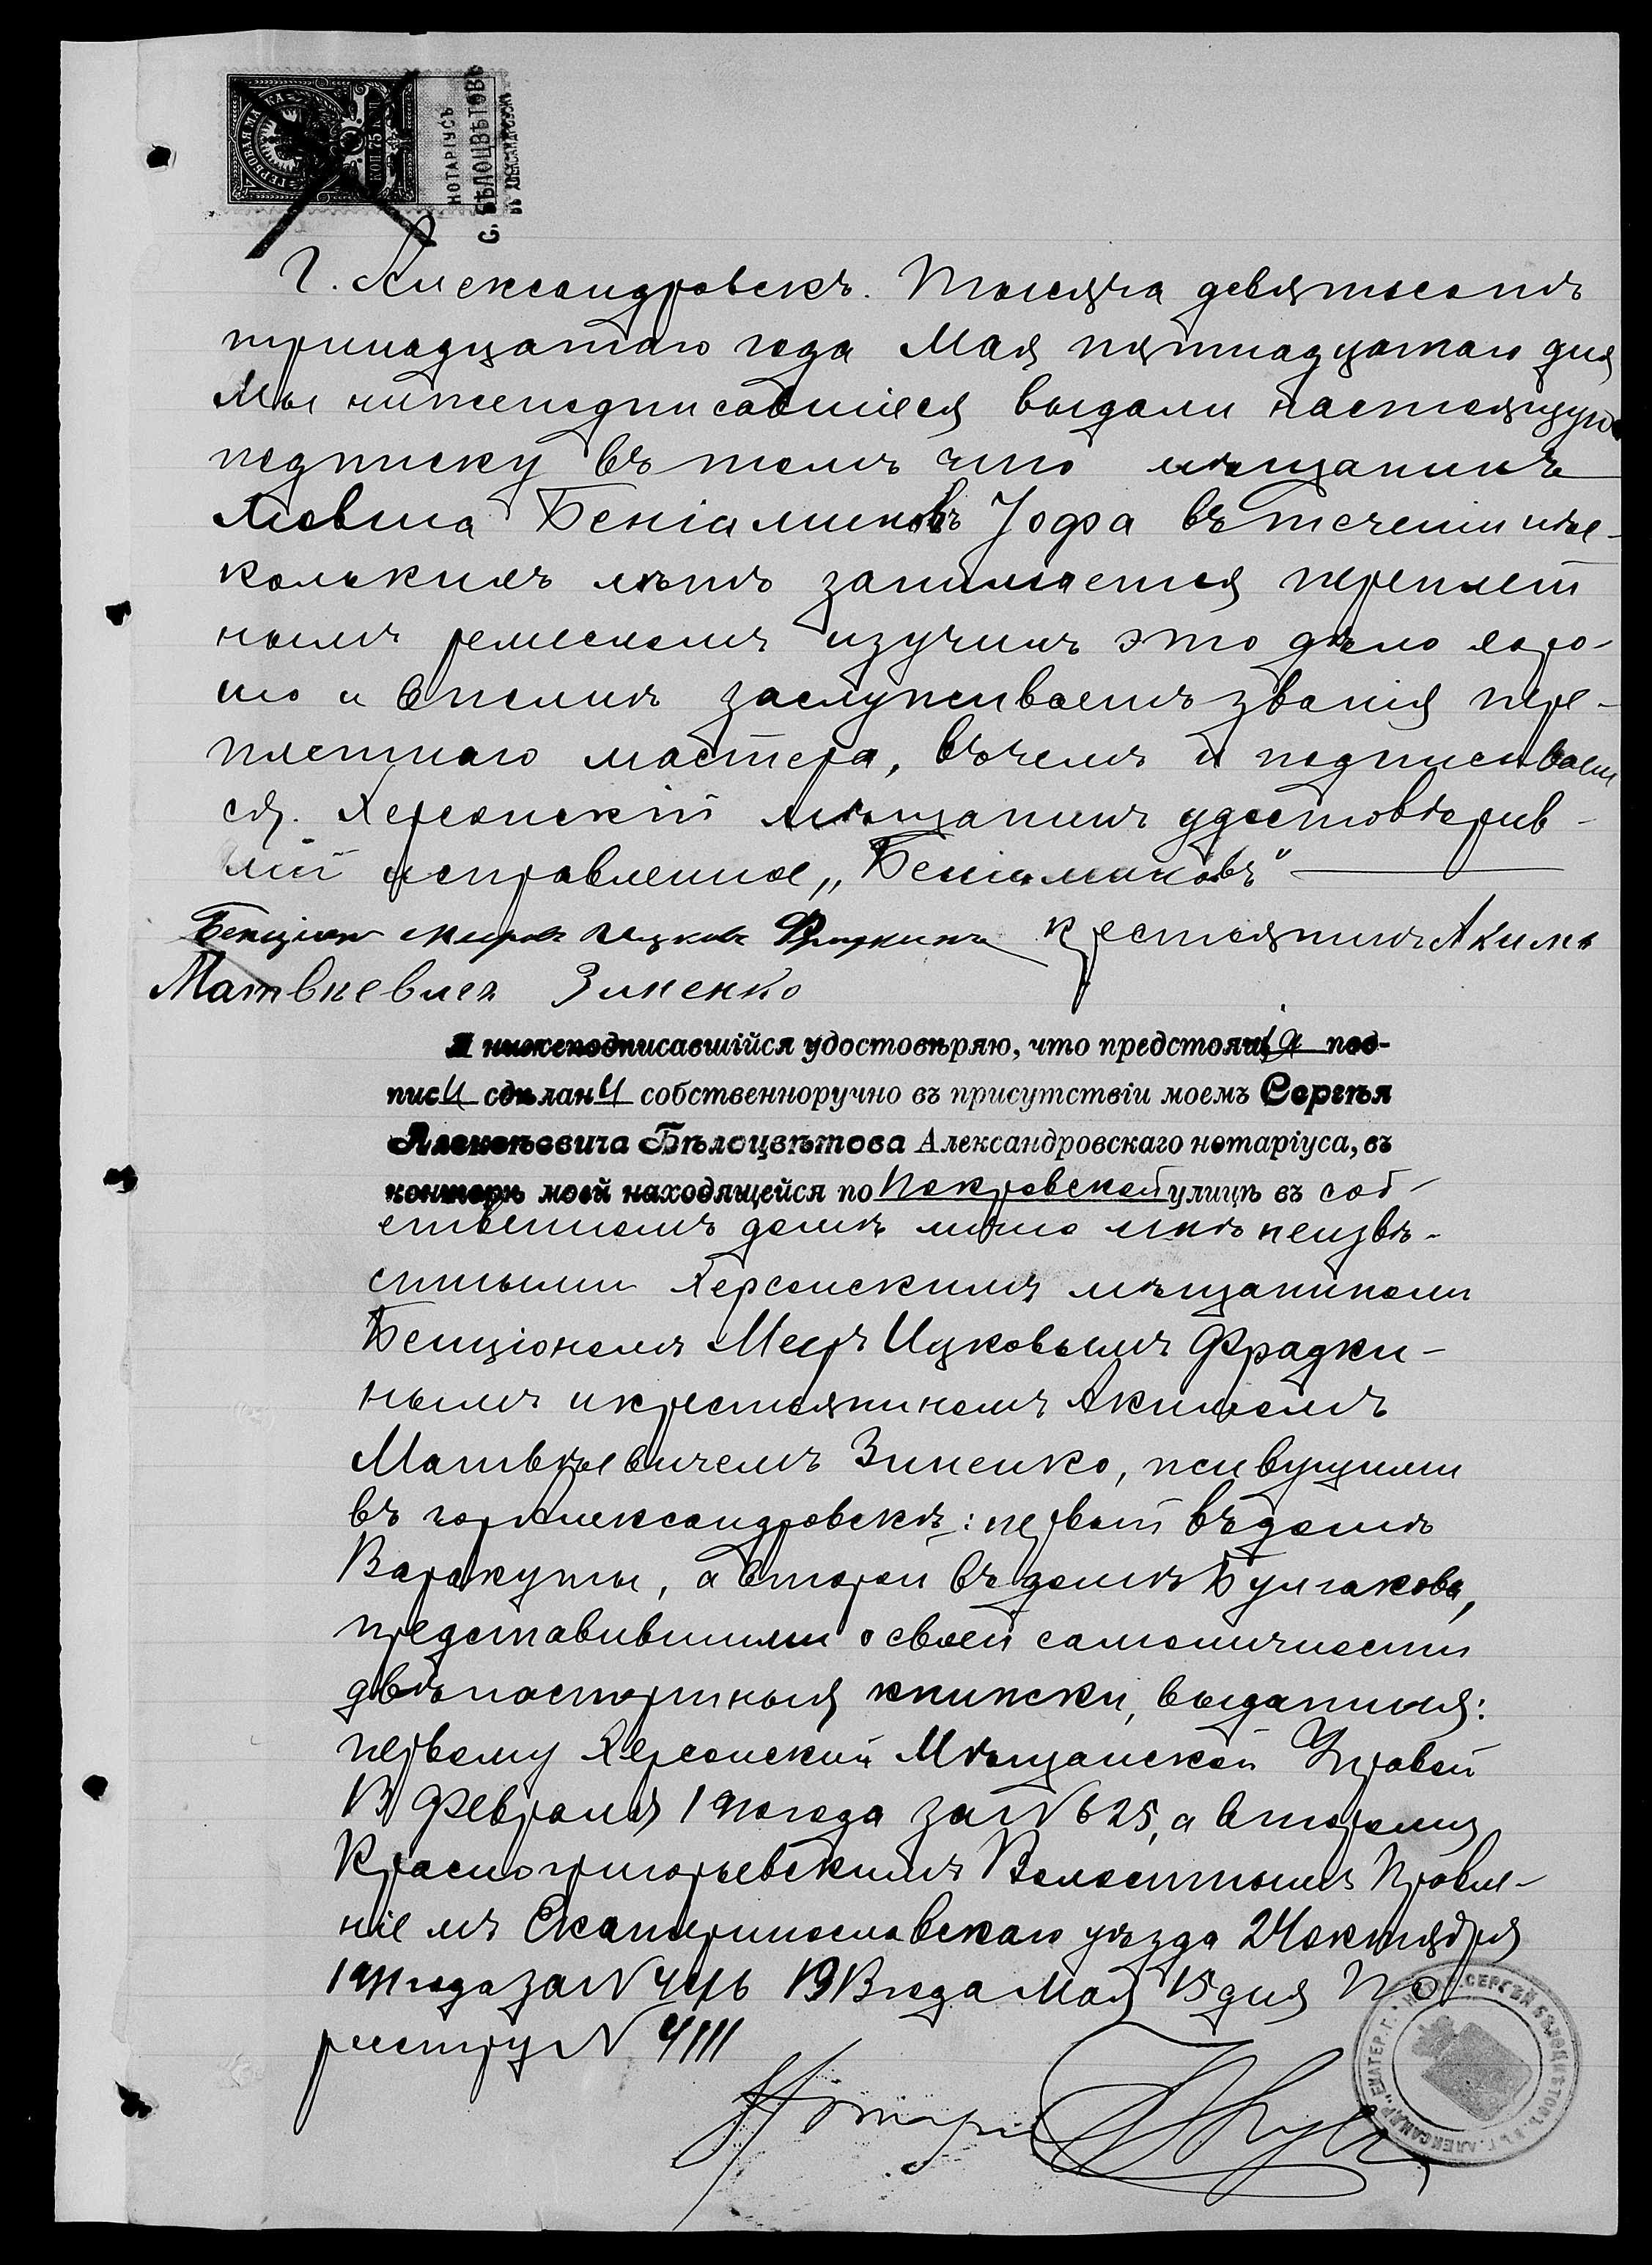 ГЕРБОВАЯ МАРКА
75 КОП
НОТАРІУСЪ
С. БѢЛОЦВѢТОВЪ
ВЪ АЛЕКСАНДРОВСКѢ
Г. Александровскъ. Тысяча девятьсотъ
тринадцатаго года Мая пятнадцатаго дня
Мы нижеподписавшіеся выдали настоящую
подписку въ томъ что мѣщанинъ
Бениаминовъ Іоффа въ теченіи нѣс-
колькихъ лѣтъ занимается переплет
нымъ ремесломъ изучилъ это дѣло хоро-
шо и вполнѣ заслуживаетъ званія пере-
плетнаго мастера, въ чемъ и подписываем
ся. Херсонскій мѣщанинъ удостовѣрив-
шій исправленное „Бениаминовъ"
Бенціонъ Мееровъ Ицковъ Фрадкинъ крестьянинъ Акимъ
Матвѣевичъ Зиненко
Я нижеподписавшійся удостовѣряю, что предстоящія под-
писи сдѣланы собственноручно въ присутствіи моемъ Сергѣя
Алексѣевича Бѣлоцвѣтова Александровскаго нотаріуса, въ
конторѣ моей находящейся по Покровской улицѣ въ соб-
ственномъ домѣ лично мнѣ неизвѣ-
стными Херсонскимъ мѣщаниномъ
Бенціономъ Меръ Ицковымъ Фрадки-
нымъ и крестьяниномъ Акимомъ
Матвѣевичемъ Зиненко, живущими
въ гор Александровскѣ: первый въ домѣ
Варакуты, а второй въ домѣ Булгакова,
представившими о своей самоличности
двѣ паспортныя книжки, выданныя:
первому Херсонской Мѣщанской Управой
13 Февраля 1910 года за N 625, а второму
Красногригорьевскимъ Волостнымъ Правле-
ніемъ Екатеринославскаго уѣзда 24 октября
1911 года за N 1913 года Мая 15 дня По
реестру N 4111
Нотаріусъ